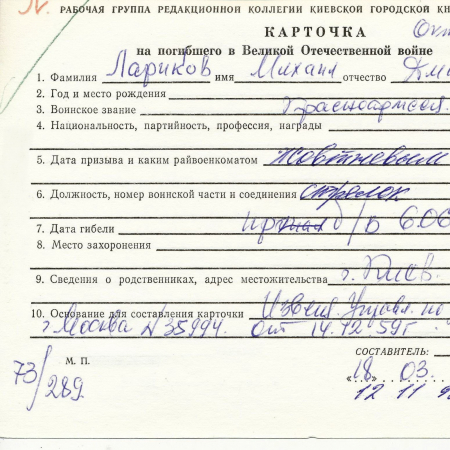 РАБОЧАЯ ГРУППА РЕДАКЦИОННОЙ КОЛЛЕГИИ КИЕВСКОЙ ГОРОДСКОЙ КН
КАРТОЧКА Окт
на погибшего в Великой Отечественной войне
1. Фамилия Лариков имя Михаил отчество Дми
2. Год и место рождения
3. Воинское звание Красноармеей
4. Национальность, партийность, профессия, награды
5. Дата призыва и каким райвоенкоматом Жовтневым
6. Должность, номер воинской части и соединения стрелок
7. Дата гибели б/в
8. Место захоронения
9. Сведения о родственниках, адрес местожительства г. Киев.
10. Основание для составления карточки Извещ. Управл. по
г. Москва N 35994. от 14.12.59г.
СОСТАВИТЕЛЬ:
73/289 М. П. «18 03.
12 11